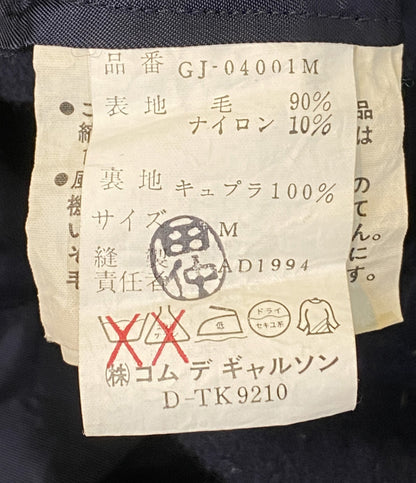 品番 GJ-04001M
表地 毛 90%
ナイロン 10%
裏地 キュプラ 100%
サイズ M
縫製
責任者 AD1994
田中
低
ドライ
セキユ系
㈱コム デ ギャルソン
D-TK9210
品
は
の
てん。
す。